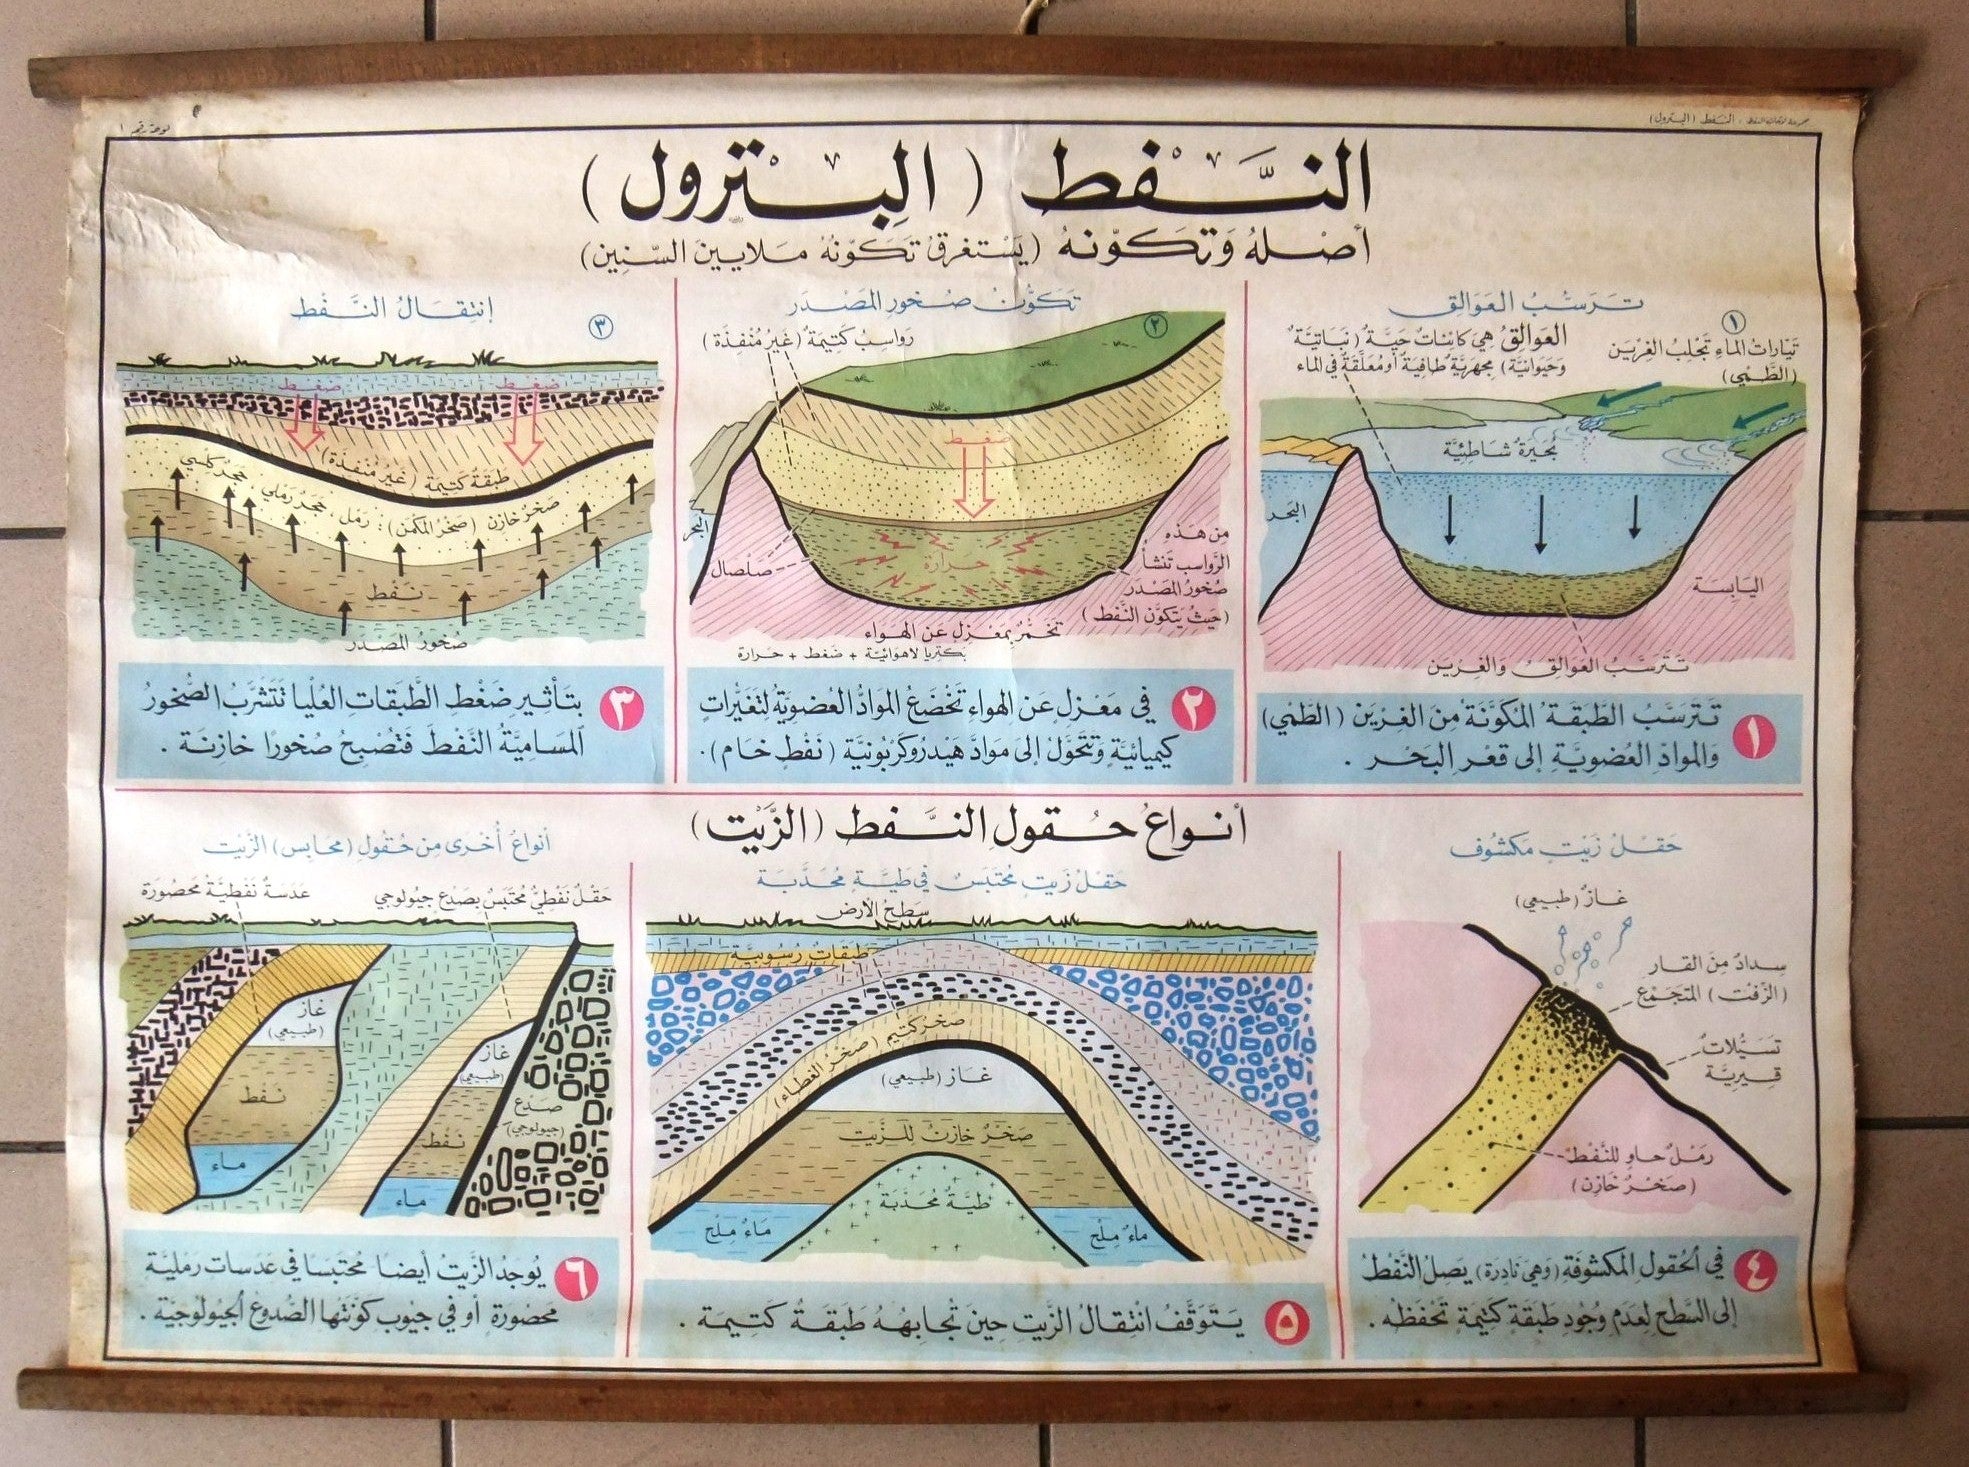 النفط (البترول)
لوحة رقم ١
النَّفط (البِترول)
أصْلهُ وَتكَوّنهُ (يَسْتغرقُ تكَوّنهُ مَلايين السّنِين)
تَرَسُّبُ العَوَالِق
١
تَيّارَاتُ المَاءِ تَجْلِبُ الغِرْيَن
(الطَّمْي)
العَوَالقُ هِيَ كائِنَاتٌ حَيَّة (نبَاتيَّة
وَحَيَوانيَّة) مِجْهريَّة طَافِيَة أو مُعَلَّقَة في المَاء
بُحَيرَة شاطِئيَّة
البَحر
اليَابسَة
تَتَرَسَّبُ العَوَالِقُ وَالغِرْيَن
١ تَتَرَسَّبُ الطَّبقَة المُكَوَّنَة مِنَ الغِرْيَن (الطَّمْي)
وَالمَوادّ العُضْويَّة إلى قَعْرِ البَحْر .
تَكَوُّنُ صُخُورِ المَصْدَر
٢
رَوَاسِبُ كَتِيمَة (غَيرُ مُنْفِذَة)
ضغط
البَحر
حرارة
صَلصَال
مِن هَذِه
الرَّوَاسِب تَنشَأ
صُخُورُ المَصْدَر
(حَيثُ يَتكَوَّن النَّفْط)
تخَمُّر بمَعْزِل عَن الهَوَاء
بكتريا لاهَوَائيَّة + ضَغط + حَرَارة
٢ في مَعْزلٍ عَن الهوَاء تَخْضَعُ المَوادُّ العُضويَّة لِتَغيُّراتٍ
كيميائيَّةٍ وَتتحَوَّل إلى مَوادَّ هَيْدرُوكَرْبُونيَّة (نَفْط خَام).
إنتِقَالُ النَّفْط
٣
ضغط
ضغط
طبَقة كَتيمَة (غَيرُ مُنفِذَة)
صَخرٌ خازن (صَخرُ المَكْمَن) : رَمْل ، حَجَرٌ رَملي ، حَجَرٌ كِلسي
نَفْط
صُخُورُ المَصْدَر
٣ بتَأثيرِ ضَغْطِ الطَّبَقاتِ العُليَا تَتَشرَّبُ الصُّخورُ
المَسَاميَّة النَّفْطَ فَتُصْبحُ صُخورًا خازنَة .
أنواعُ حُقولِ النَّفط (الزّيت)
حَقْلُ زَيتٍ مَكشُوف
غازٌ (طَبيعي)
سِدادٌ مِنَ القَار
(الزِّفْت) المُتجَمِّع
تَسَيُّلَات
قِيريَّة
رَمْلٌ حَاوٍ للنَّفْط
(صَخْرٌ خَازِن)
٤ في الحُقولِ المَكشُوفَةِ (وَهِيَ نَادِرَة) يَصِلُ النَّفْطُ
إلى السَّطحِ لِعَدَمِ وُجُودِ طَبقَةٍ كَتيمَةٍ تَحْفَظه .
حَقْلُ زَيتٍ مُحْتَبَسٌ في طَيَّةٍ مُحَدَّبَة
سَطحُ الأرض
طَبقَات رسُوبيَّة
صَخرٌ كتيم (صَخرُ الغِطَاء)
غَاز (طبيعي)
صَخْرٌ خازنٌ للزَّيت
طَيَّة مُحَدَّبَة
مَاءٌ مِلْح
مَاءٌ مِلْح
٥ يَتَوَقَّفُ انْتِقَالُ الزَّيْتِ حِينَ تُجَابِههُ طَبَقَةٌ كَتِيمَة .
أنْوَاعٌ أُخْرَى مِن حُقُولِ (محَابس) الزَّيْت
حَقْلٌ نَفْطيٌّ مُحْتَبَسٌ بصَدْعٍ جيُولوجي
عَدَسَةٌ نَفْطيَّة مَحصُورَة
غَاز
(طَبيعي)
نَفْط
مَاء
غَاز
(طبيعي)
نَفْط
مَاء
صَدْع
(جيولوجي)
٦ يُوجَدُ الزَّيتُ أيضًا مُحتَبَسًا في عَدَسات رَمْليَّة
مَحصُورَة أو في جيُوب كوَّنَتْها الصُّدوعُ الجيُولوجيَّة .